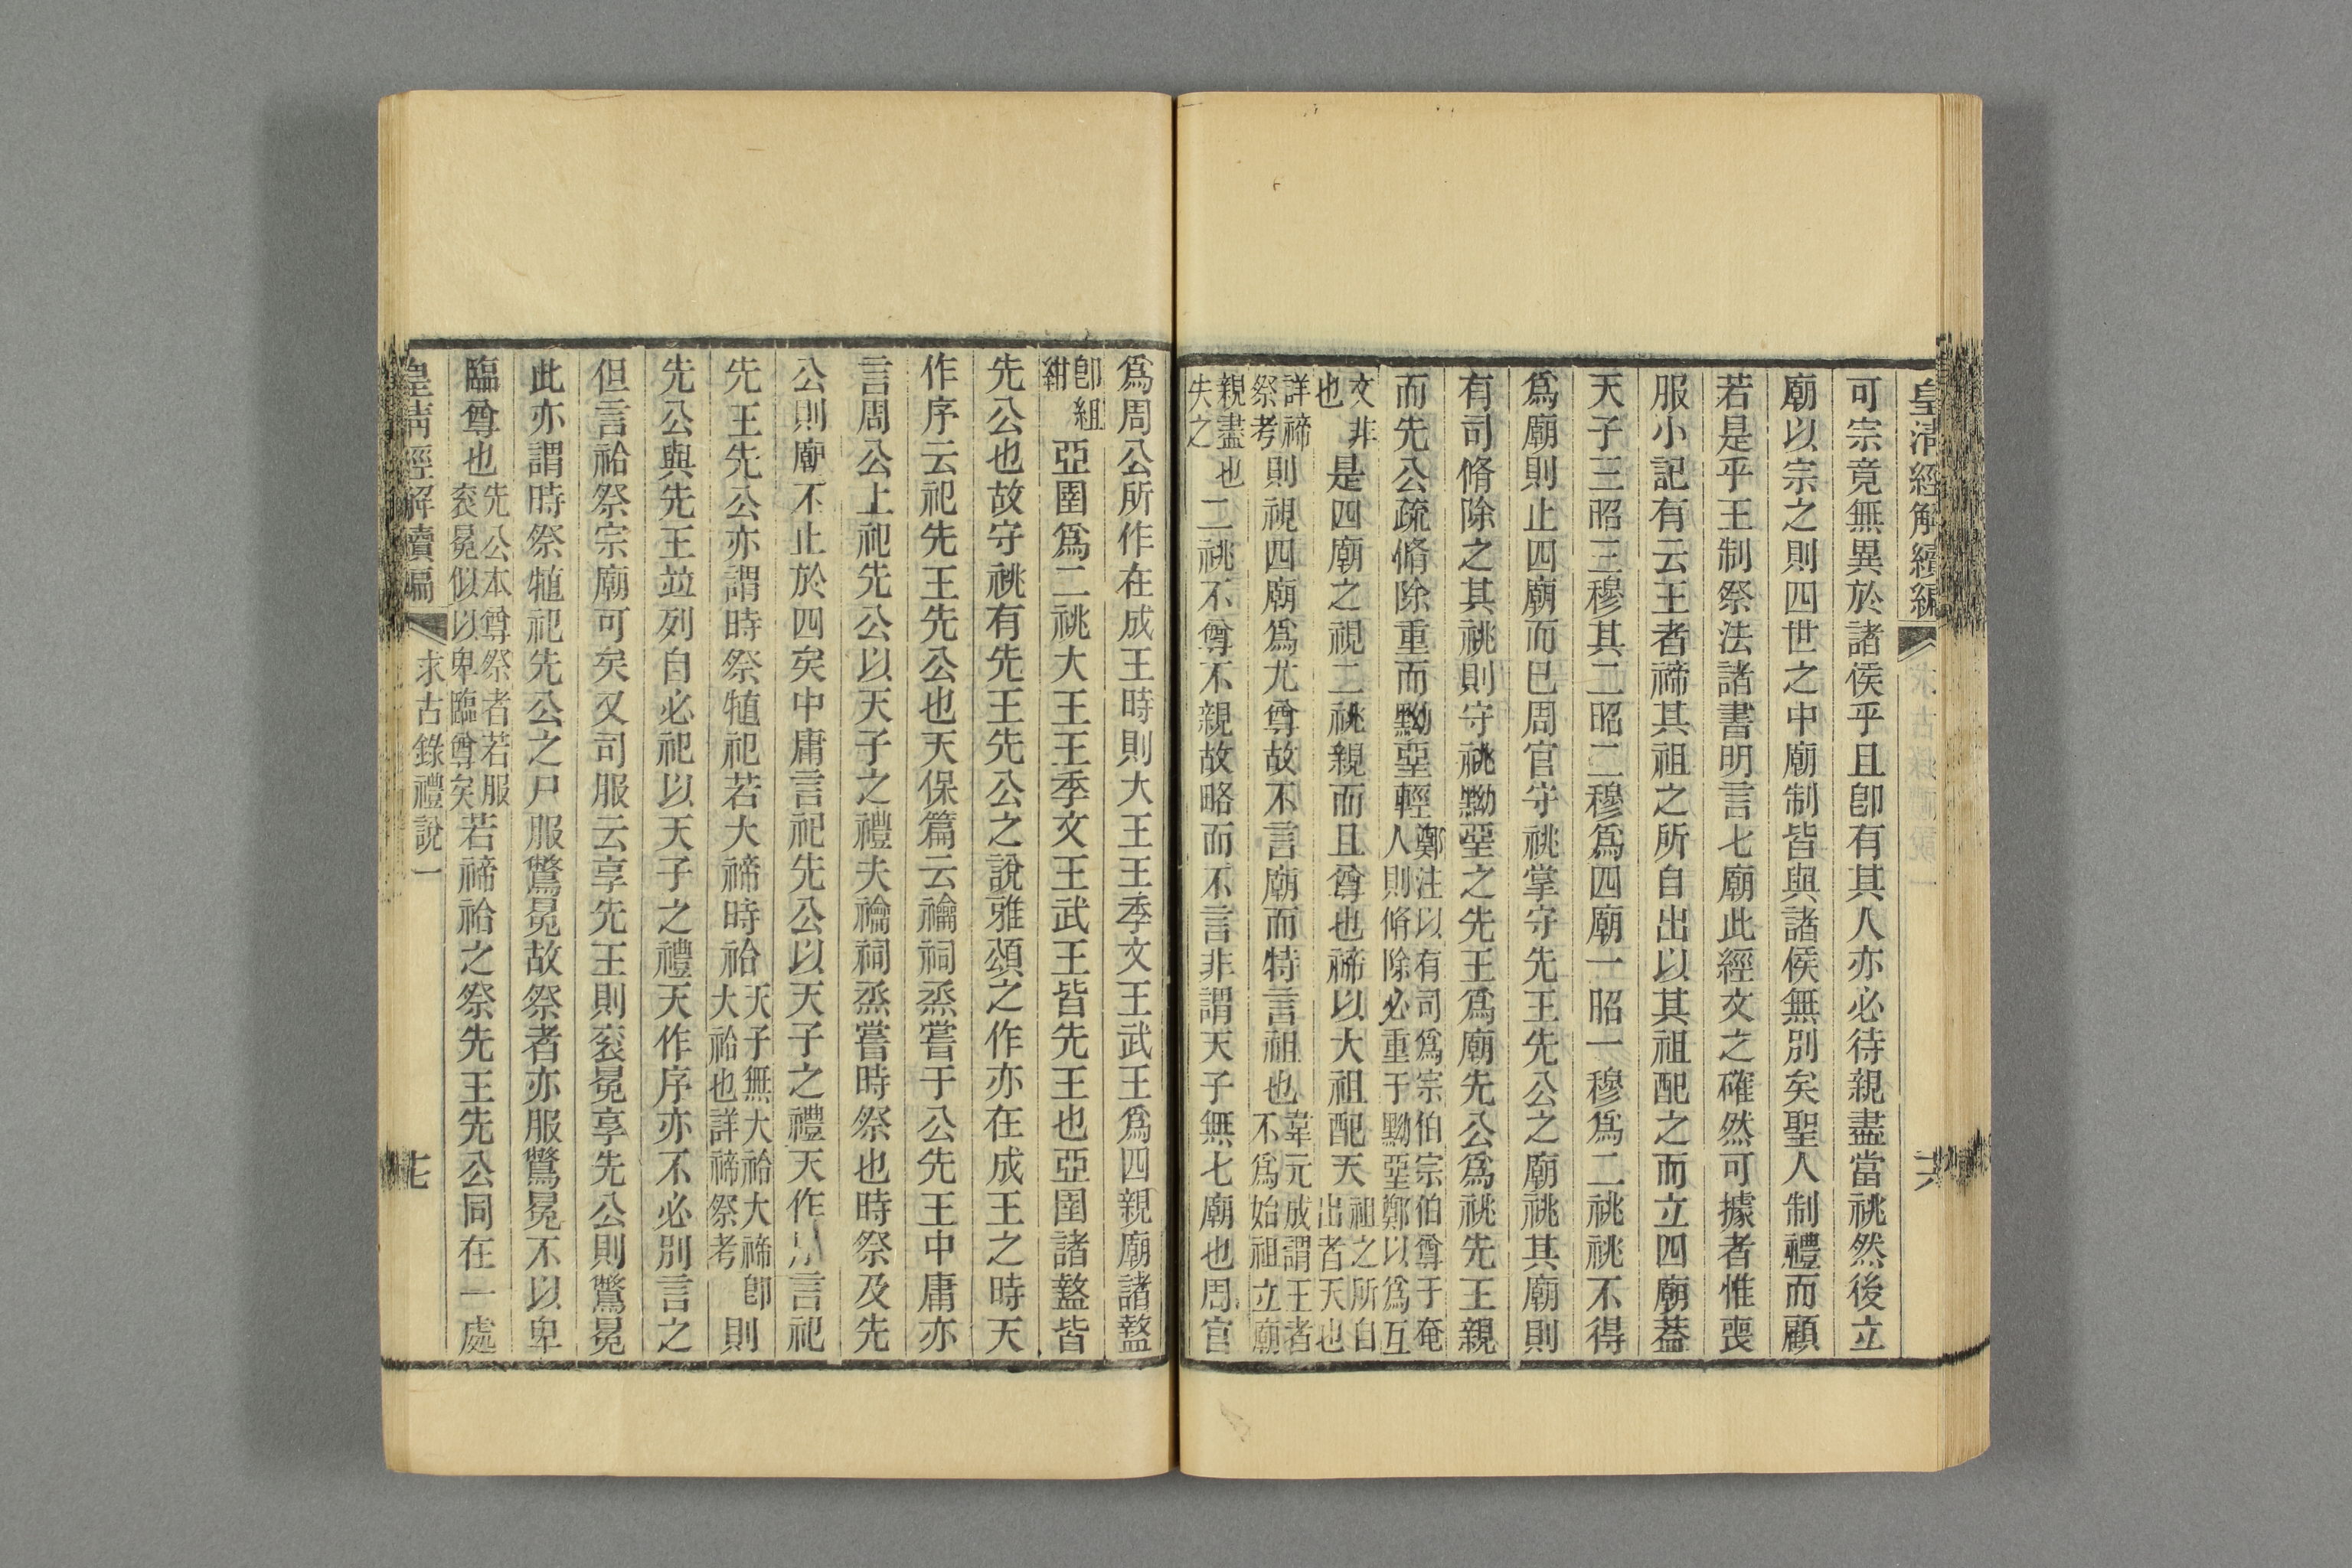 皇清經解續編
六
可宗竟無異於諸侯乎且卽有其人亦必待親盡當祧然後立
廟以宗之則四世之中廟制皆與諸侯無別矣聖人制禮而顧
若是乎王制祭法諸書明言七廟此經文之確然可據者惟喪
服小記有云王者禘其祖之所自出以其祖配之而立四廟葢
天子三昭三穆其二昭二穆爲四廟一昭一穆爲二祧祧不得
爲廟則止四廟而已周官守祧掌守先王先公之廟祧其廟則
有司脩除之其祧則守祧黝堊之先王爲廟先公爲祧先王親
而先公疏脩除重而黝堊輕鄭注以有司爲宗伯宗伯尊于奄人則脩除必重于黝堊鄭以爲互
文非也是四廟之視二祧親而且尊也禘以大祖配天祖之所自出者天也
詳禘祭考則視四廟爲尤尊故不言廟而特言祖也韋元成謂王者不爲始祖立廟
親盡也失之二祧不尊不親故略而不言非謂天子無七廟也周官
爲周公所作在成王時則大王王季文王武王爲四親廟諸盩
卽組紺亞圉爲二祧大王王季文王武王皆先王也亞圉諸盩皆
先公也故守祧有先王先公之說雅頌之作亦在成王之時天
作序云祀先王先公也天保篇云禴祠烝嘗于公先王中庸亦
言周公上祀先公以天子之禮夫禴祠烝嘗時祭也時祭及先
公則廟不止於四矣中庸言祀先公以天子之禮天作言祀
先王先公亦謂時祭犆祀若大禘時祫天子無大祫大禘卽大祫也詳禘祭考則
先公與先王竝列自必祀以天子之禮天作序亦不必別言之
但言祫祭宗廟可矣又司服云享先王則袞冕享先公則鷩冕
此亦謂時祭犆祀先公之尸服鷩冕故祭者亦服鷩冕不以卑
臨尊也先公本尊祭者若服袞冕似以卑臨尊矣若禘祫之祭先王先公同在一處
皇清經解續編
求古錄禮說一
七